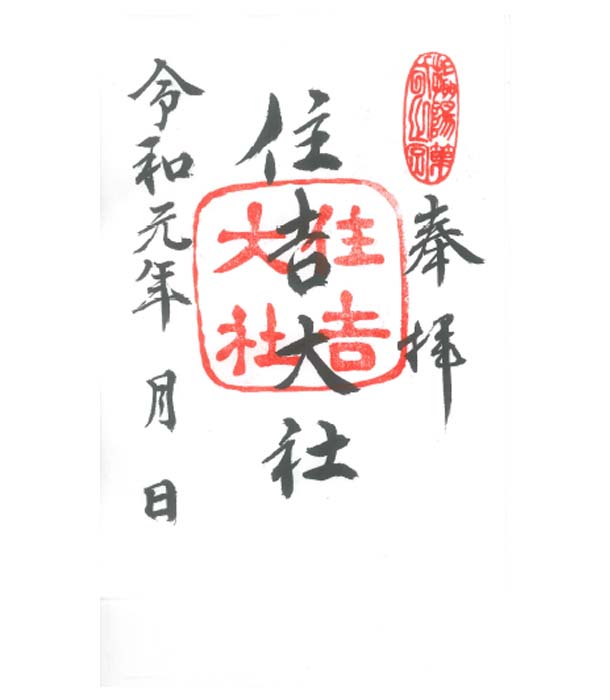 奉拝
住吉大社
住吉
大社
令和元年 月 日